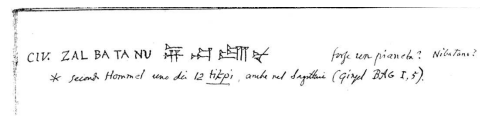 CIV. ZAL BA TA NU 𒉌 𒁀 𒋫 𒉡 forse un pianeta? Nibatanu?
* secondo Hommel uno dei 12 tikpi, anche nel Sagittario (Ginzel BAG I, 5).